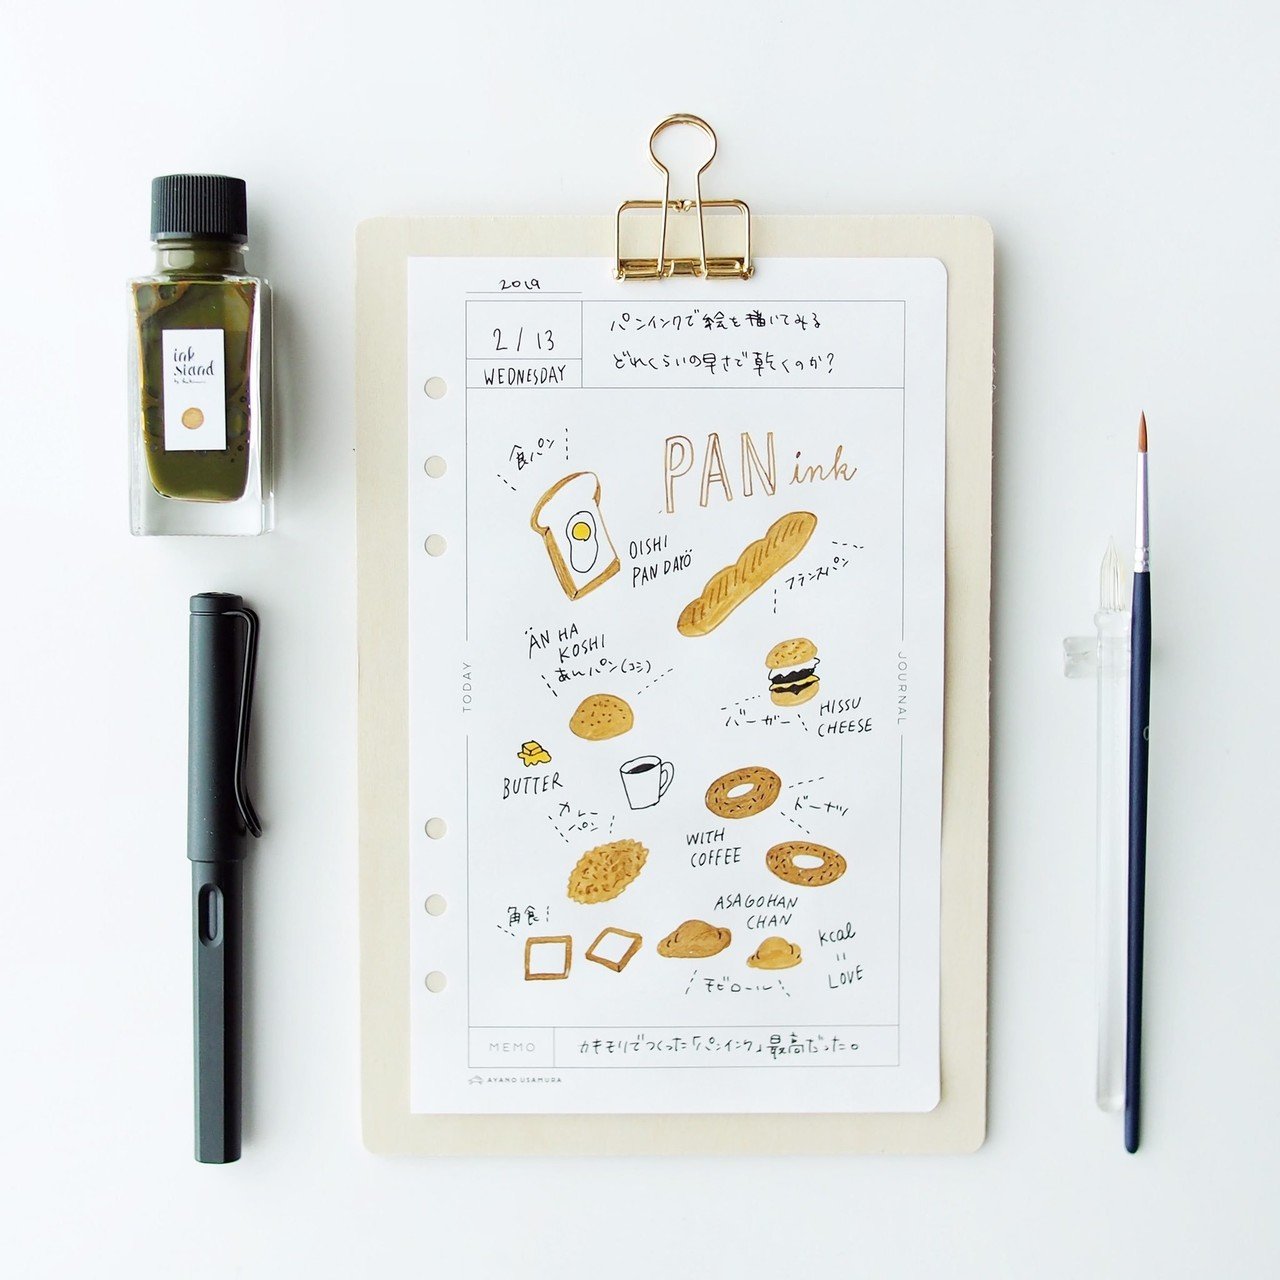 ink
stand
by Kakimori
2019
2/13
WEDNESDAY
パンインクで絵を描いてみる
どれくらいの早さで乾くのか?
PAN ink
食パン
OISHI
PAN DAYÖ
フランスパン
ÄN HA
KOSHI
あんパン(コシ)
バーガー
HISSU
CHEESE
BUTTER
カレー
パン
ドーナツ
WITH
COFFEE
角食
ASAGOHAN
CHAN
kcal
=
LOVE
チビロール
TODAY
JOURNAL
MEMO
カキモリでつくった「パンインク」最高だった。
AYANO USAMURA